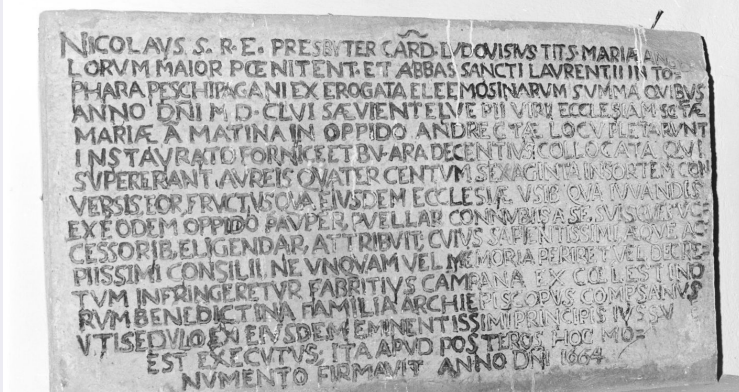 NICOLAVS. S. R. E. PRESBVTER CARD. LVDOVISIVS TITS. MARIÆ ANGE
LORVM MAIOR PŒNITENT. ET ABBAS SANCTI LAVRENTII IN TO=
PHARA PESCHIPAGANI EX EROGATA ELEEMOSINARVM SVMMA QVIBVS
ANNO DNI M D. CLVI SÆVIENTE LVE PII VIRI ECCLESIAM SCTÆ
MARIÆ A MATINA IN OPPIDO ANDRECTÆ LOCVPLETARVNT
INSTAVRATO FORNICE. ET BV. ARA DECENTIVS COLLOCATA QVI
SVPERERANT. AVREIS QVATER CENTVM SEXAGINTA IN SORTEM CON
VERSIS. EOR. FRVCTVS QVA EIVSDEM ECCLESIÆ VSIB QVA IVVANDIS
EX EODEM OPPIDO PAVPER. PVELLAR CONNVBIIS A SE. SVISQVE SVC
CESSORIB. ELIGENDAR. ATTRIBVIT. CVIVS SAPIENTISSIMI ÆQVE AC
PIISSIMI CONSILII. NE VNQVAM VEL MEMORIA PERIRET VEL DECRE
TVM INFRINGERETVR FABRITIVS CAMPANA EX CŒLESTINO
RVM BENEDICTINA FAMILIA ARCHIEPISCOPVS COMPSANVS
VTI SEDVLO EX EIVSDEM EMINENTISSIMI PRINCIPIS IVSSV
EST EXECVTVS, ITA APVD POSTEROS HOC MO=
NVMENTO FIRMAVIT ANNO DNI 1664